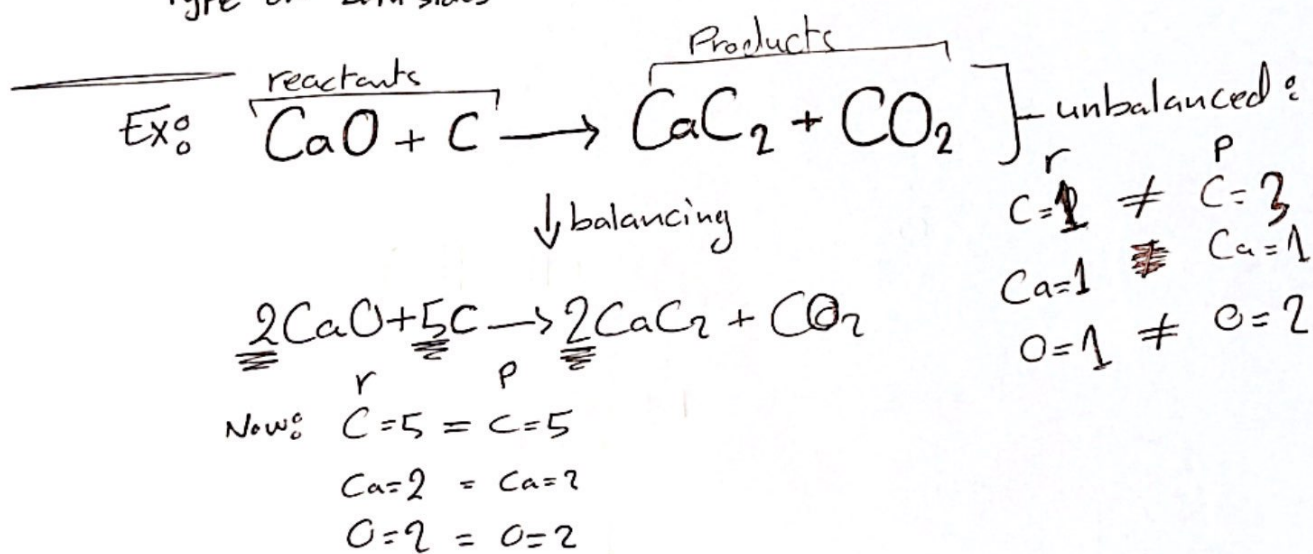 Type on both sides
reactants
Products
Ex: CaO + C → CaC₂ + CO₂ unbalanced:
r p
C=1 ≠ C=3
Ca=1 Ca=1
O=1 ≠ O=2
↓ balancing
2CaO+5C → 2CaC₂ + CO₂
r p
Now: C=5 = C=5
Ca=2 = Ca=2
O=2 = O=2